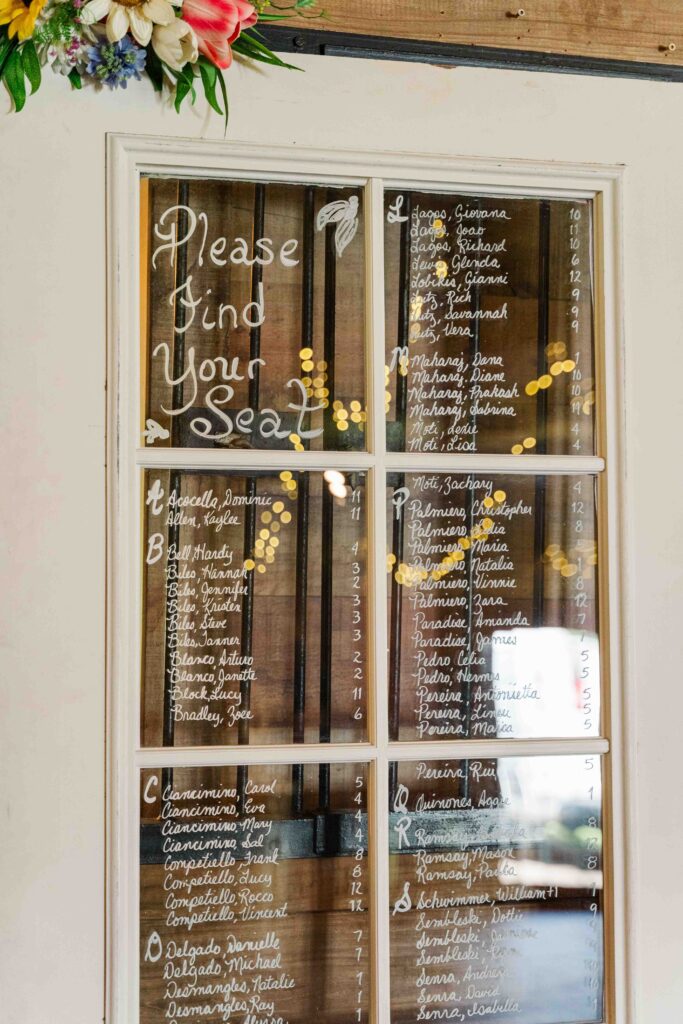 Please
Find
Your
Seat
A
Acocella, Dominic 11
Allen, Kaylee 11
B
Bell, Hardy 4
Biles, Hannah 3
Biles, Jennifer 2
Biles, Kristen 3
Biles, Steve 3
Biles, Tanner 3
Blanco, Arturo 2
Blanco, Janette 2
Block, Lucy 11
Bradley, Zoee 6
C
Ciancimino, Carol 5
Ciancimino, Eva 4
Ciancimino, Mary 4
Ciancimino, Sal 4
Competiello, Frank 8
Competiello, Lucy 8
Competiello, Rocco 12
Competiello, Vincent 12
D
Delgado, Danielle 7
Delgado, Michael 7
Desmangles, Natalie 1
Desmangles, Ray 1
L
Lagos, Giovana 10
Lagos, Joao 11
Lagos, Richard 10
Glenda 6
Gianni 12
Rich 9
Savannah 9
Vera 9
M
Maharaj, Dana 1
Maharaj, Diane 10
Maharaj, Prakash 10
Maharaj, Sabrina
Moti, Leslie 4
Moti, Lisa 4
Moti, Zachary 4
P
Palmiero, Christopher 12
Palmiero, 8
Palmiero, Maria 8
Palmiero, Natalia
Palmiero, Vinnie 8
Palmiero, Zara 12
Paradise, Amanda 7
Paradise, James
Pedro Celia 5
Pedro, Hermes 5
Pereira, Antonietta 5
Pereira, 5
Pereira, 5
Pereira, Rui 5
Q
Quinones, 1
R
Ramsay, 8
Ramsay, Mason
Ramsay, 8
S
Schwimmer, William +1
Sembleski, Dottie 9
Sembleski,
Sembleski,
Senra, Andrew
Senra, David
Senra, Isabella